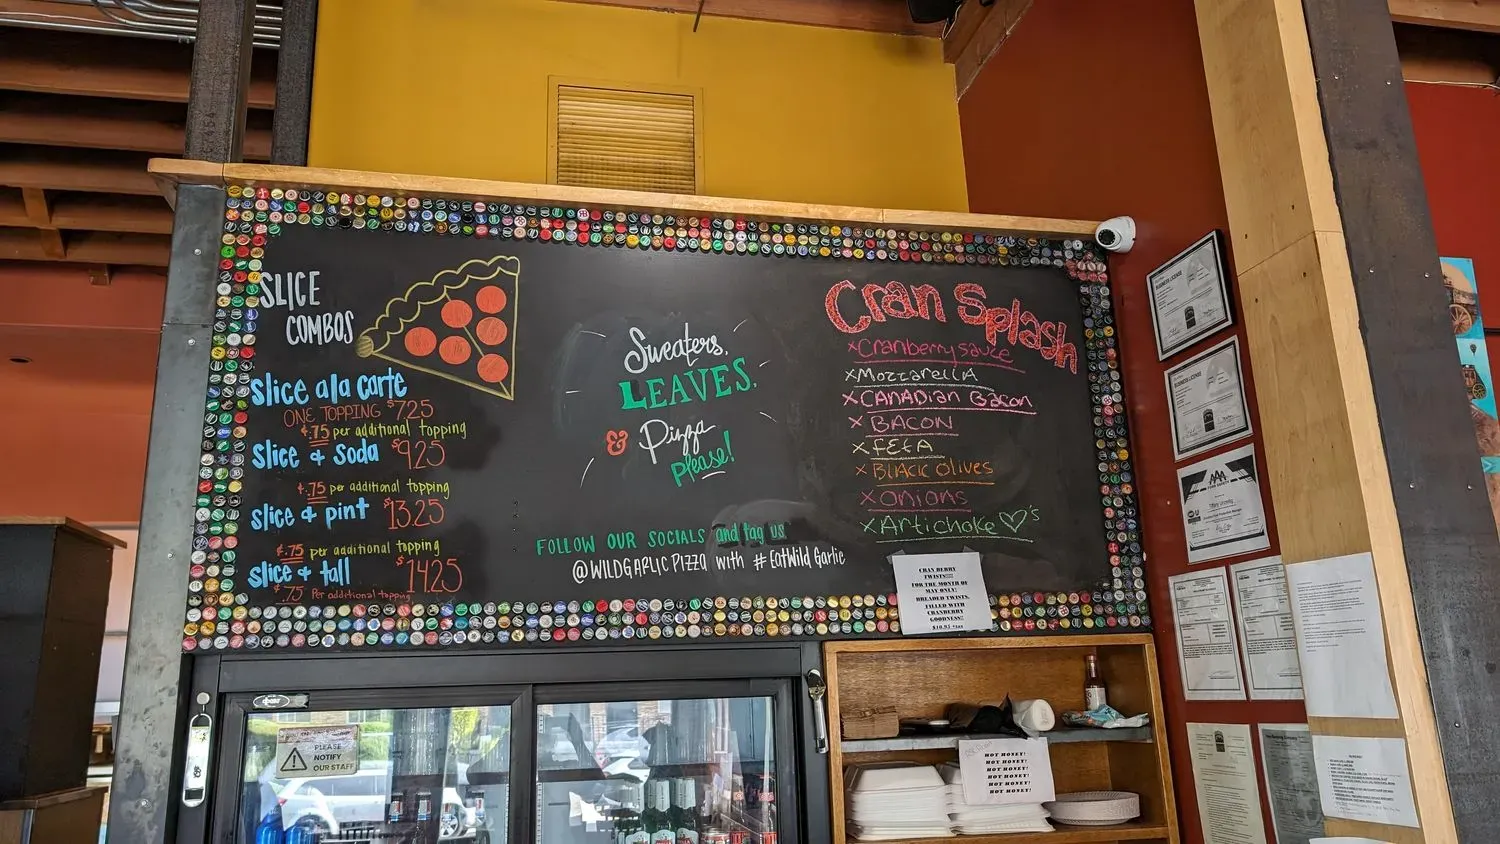 SLICE
COMBOS
Slice ala carte
ONE TOPPING $7.25
¢.75 per additional topping
Slice & Soda $9.25
¢.75 per additional topping
slice & pint $13.25
¢.75 per additional topping
slice & tall $14.25
¢.75 Per additional topping
Sweaters,
LEAVES,
& Pizza
please!
FOLLOW OUR SOCIALS and tag us
@WILDGARLICPIZZA with #EatWild Garlic
Cran Splash
x Cranberry sauce
x Mozzarella
x CANADian Bacon
x BACON
x FETA
x Black Olives
x Onions
x Artichoke ♡'s
CRAN BERRY
TWISTS!!!
FOR THE MONTH OF
MAY ONLY!
BREADED TWISTS,
FILLED WITH
CRANBERRY
GOODNESS!!
$10.95
PLEASE
NOTIFY
OUR STAFF
HOT HONEY!
HOT HONEY!
HOT HONEY!
HOT HONEY!
HOT HONEY!
HOT HONEY!
BUSINESS LICENSE